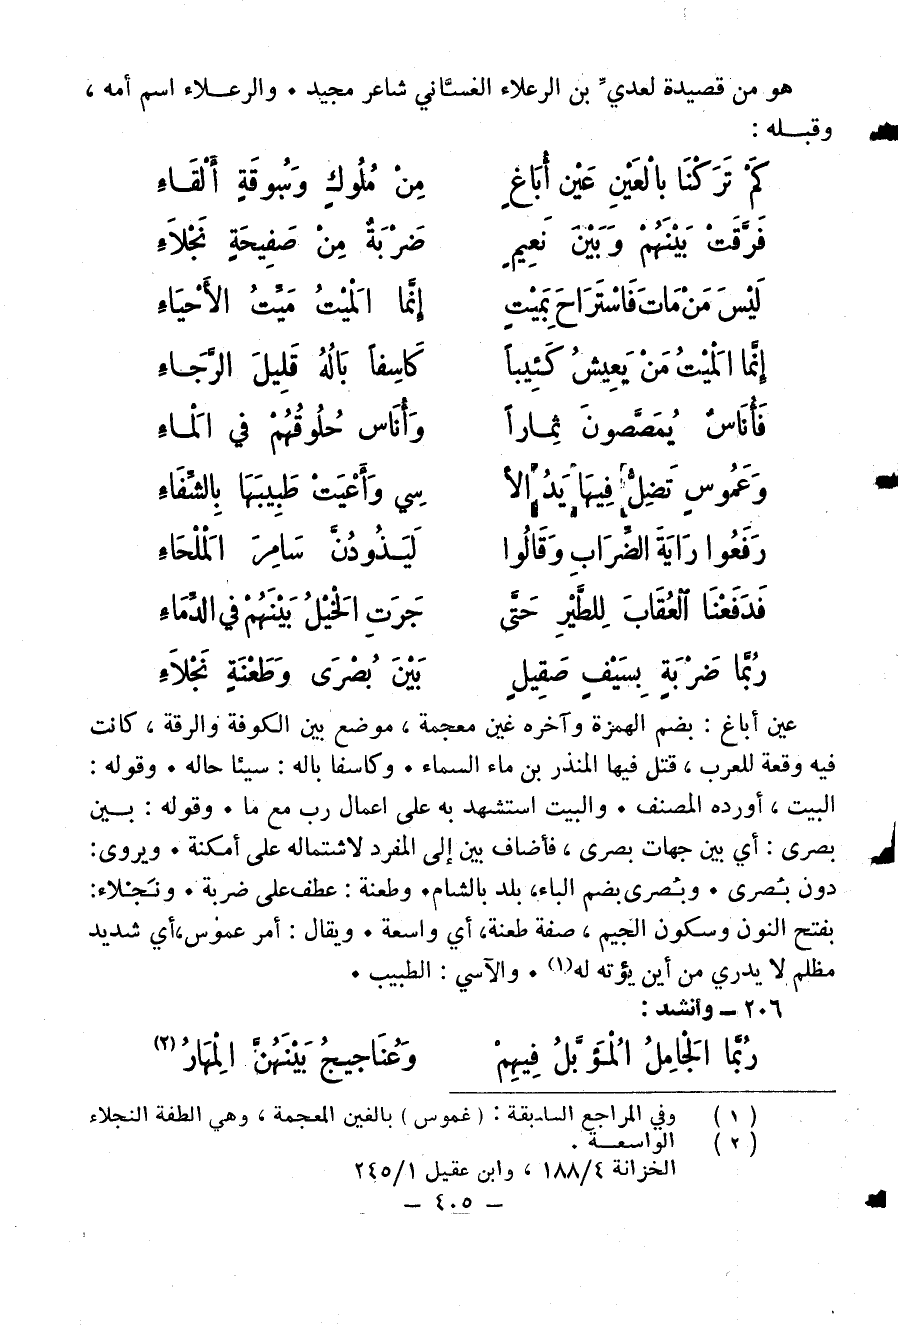 هو من قصيدة لعديّ بن الرعلاء الغسّاني شاعر مجيد • والرعلاء اسم أمه ،
وقبله :
كَمْ تَرَكْنَا بِالْعَيْنِ عَيْنِ أُبَاغٍ مِنْ مُلُوكٍ وَسُوقَةٍ أَلْقَاءِ
فَرَّقَتْ بَيْنَهُمْ وَبَيْنَ نَعِيمٍ ضَرْبَةٌ مِنْ صَفِيحَةٍ نَجْلاَءِ
لَيْسَ مَنْ مَاتَ فَاسْتَرَاحَ بِمَيْتٍ إِنَّمَا المَيْتُ مَيِّتُ الأَحْيَاءِ
إِنَّمَا المَيْتُ مَنْ يَعِيشُ كَئِيباً كَاسِفاً بَالُهُ قَلِيلَ الرَّجَاءِ
فَأُنَاسٌ يُمَصَّصُونَ ثِمَاراً وَأُنَاس حُلُوقُهُمْ فِي المَاءِ
وَعَمُوسٍ تَضِلُّ فِيهَا يَدُ الآ سِي وَأَعْيَتْ طَبِيبَهَا بِالشِّفَاءِ
رَفَعُوا رَايَةَ الضِّرَابِ وَقَالُوا لَيَذُودُنَّ سَامِرَ المَلْحَاءِ
فَدَفَعْنَا العُقَابَ لِلطَّيْرِ حَتَّى جَرَتِ الخَيْلُ بَيْنَهُمْ فِي الدِّمَاءِ
رُبَّمَا ضَرْبَةٍ بِسَيْفٍ صَقِيلٍ بَيْنَ بُصْرَى وَطَعْنَةٍ نَجْلاَءِ
عين أباغ : بضم الهمزة وآخره غين معجمة ، موضع بين الكوفة والرقة ، كانت
فيه وقعة للعرب ، قتل فيها المنذر بن ماء السماء • وكاسفا باله : سيئا حاله • وقوله :
البيت ، أورده المصنف • والبيت استشهد به على اعمال رب مع ما • وقوله : بين
بصرى : أي بين جهات بصرى ، فأضاف بين إلى المفرد لاشتماله على أمكنة • ويروى :
دون بُصرى • وبُصرى بضم الباء، بلد بالشام• وطعنة : عطف على ضربة • ونَجلاء:
بفتح النون وسكون الجيم ، صفة طعنة، أي واسعة • ويقال : أمر عموس،أي شديد
مظلم لا يدري من أين يؤته له(١) • والآسي : الطبيب •
٢٠٦ ــ وأنشد :
رُبَّمَا الجَامِلُ المُؤَبَّلُ فِيهِمْ وَعَنَاجِيجُ بَيْنَهُنَّ المِهَارُ (٢)
( ١ ) وفي المراجع السابقة : ( غموس ) بالغين المعجمة ، وهي الطفة النجلاء
( ٢ ) الواسعة .
الخزانة ١٨٨/٤ ، وابن عقيل ٢٤٥/١
ــ ٤٠٥ ــ